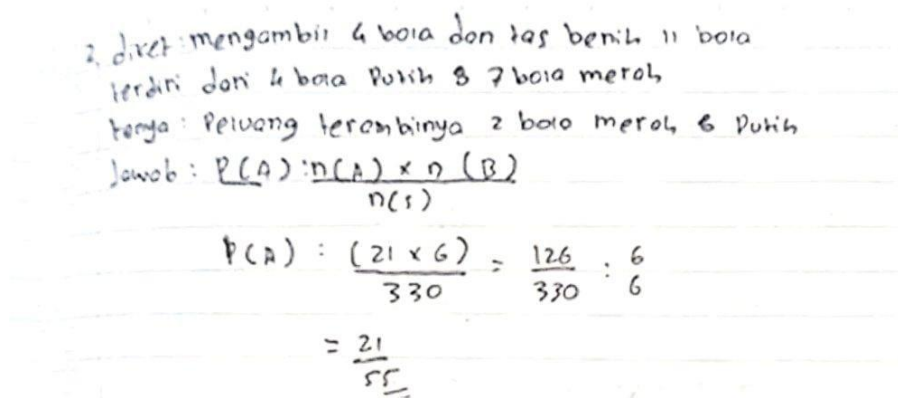 2. diket : mengambil 4 bola dan tas berisi 11 bola
terdiri dari 4 bola Putih & 7 bola merah
tanya : Peluang terambinya 2 bola merah & Putih
Jawab : P(A) : n(A) × n(B)
n(s)
P(A) : (21 × 6) = 126 : 6
330 330 6
= 21
55